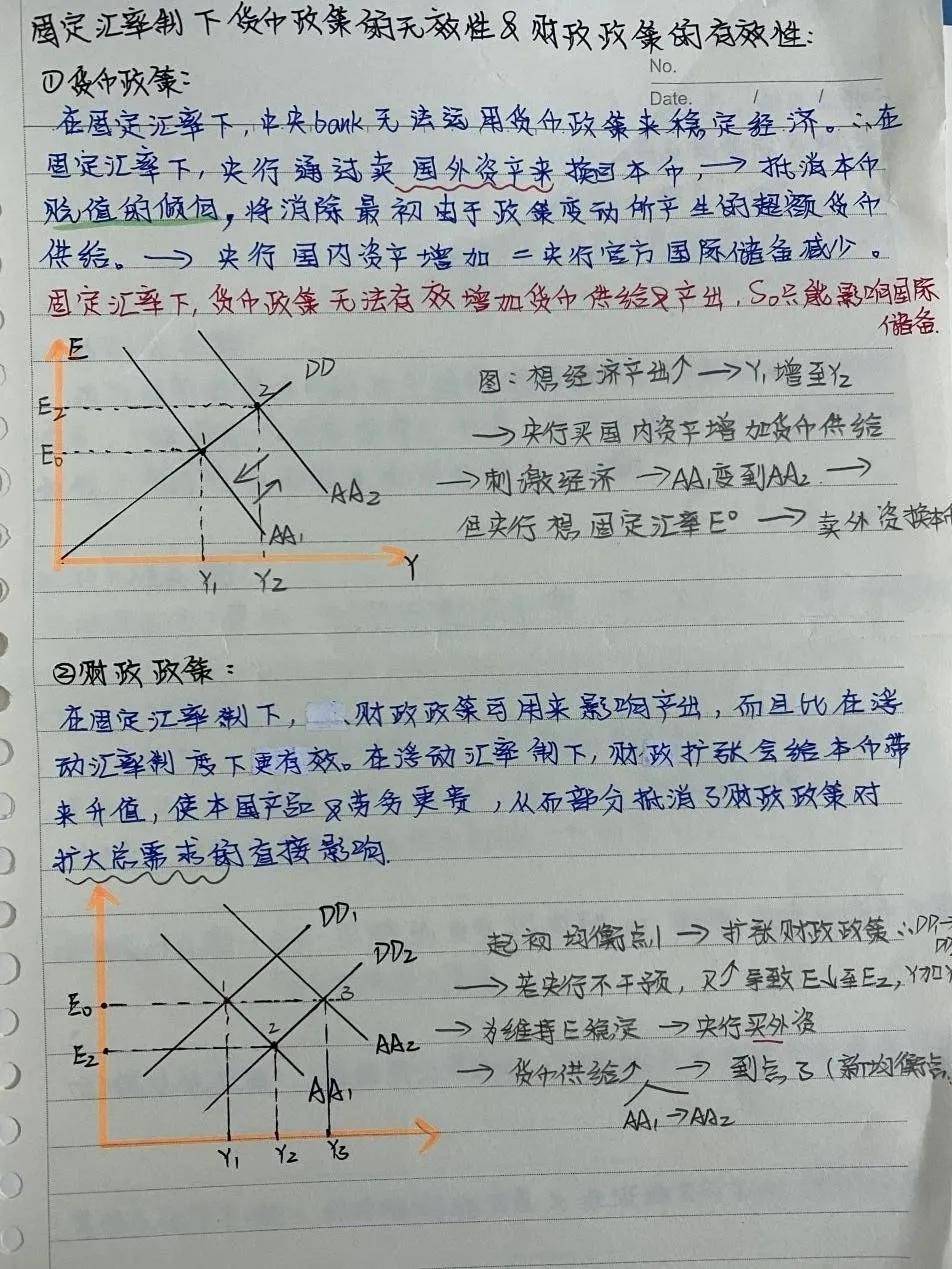 固定汇率制下货币政策的无效性&财政政策的有效性:
No.
①货币政策:
Date. / /
在固定汇率下,中央bank无法运用货币政策来稳定经济。∴在
固定汇率下,央行通过卖国外资产来换回本币,→抵消本币
贬值的倾向,将消除最初由于政策变动所产生的超额货币
供给。→央行国内资产增加=央行官方国际储备减少。
固定汇率下,货币政策无法有效增加货币供给及产出,So只能影响国际
储备.
E
DD
2
E₂
E₀
1
AA₂
AA₁
Y₁ Y₂ Y
图:想经济产出↑→Y₁增至Y₂
→央行买国内资产增加货币供给
→刺激经济→AA₁变到AA₂→
但央行想固定汇率E⁰→卖外资换本
②财政政策:
在固定汇率制下,财政政策可用来影响产出,而且比在浮
动汇率制度下更有效。在浮动汇率制下,财政扩张会给本币带
来升值,使本国产品及劳务更贵,从而部分抵消了财政政策对
扩大总需求的直接影响.
DD₁
DD₂
1
3
E₀
2
E₂
AA₂
AA₁
Y₁ Y₂ Y₃
起初均衡点1→扩张财政政策∴DD₁→
→若央行不干预,R↑导致E↓至E₂,Y加
→为维持E稳定→央行买外资
→货币供给↑→到点3(新均衡点
AA₁→AA₂